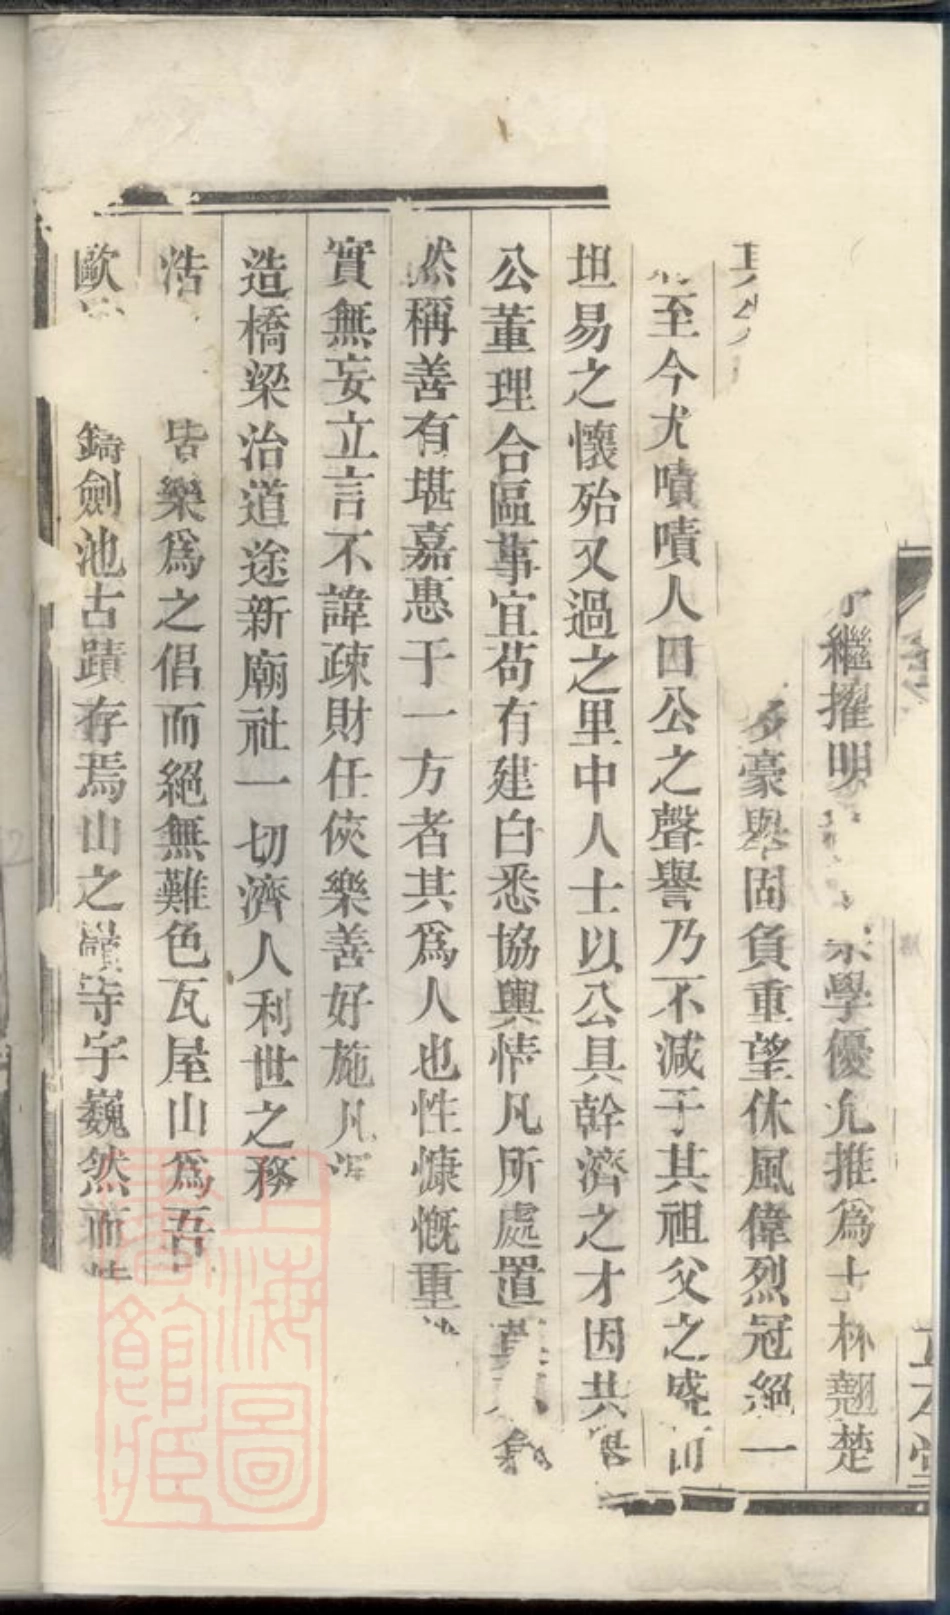 繼擢明學優允推爲士林翹楚
其先豪舉固負重望休風偉烈冠絕一
至今尤嘖嘖人口公之聲譽乃不減于其祖父之盛而
坦易之懷殆又過之里中人士以公具幹濟之才因共舉
公董理合區事宜茍有建白悉協輿情凡所處置
然稱善有堪嘉惠于一方者其爲人也性慷慨重
實無妄立言不諱疎財任俠樂善好施凡
造橋梁治道途新廟社一切濟人利世之務
浩皆樂爲之倡而絕無難色瓦屋山爲吾
歐鑄劍池古蹟存焉山之巔寺宇巍然而
上海圖書館藏